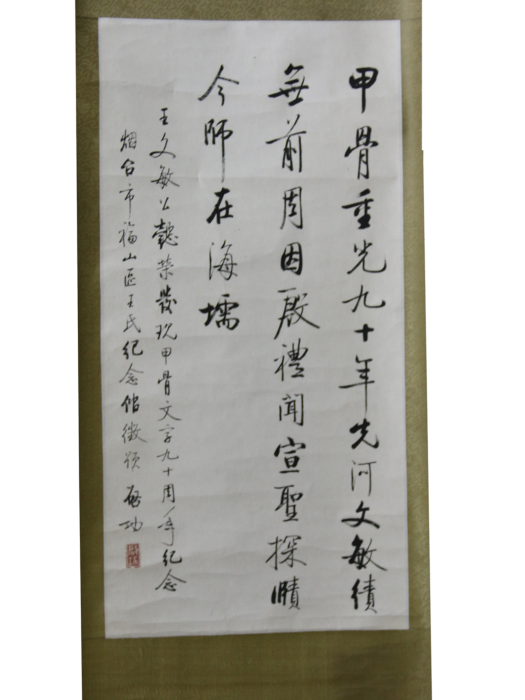 甲骨重光九十年先河文敏績
無前周因殷禮聞宣聖探賾
今師在海壖
王文敏公懿荣發現甲骨文字九十周年纪念
烟台市福山區王氏纪念馆徵题 啟功